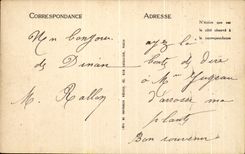 CORRESPONDANCE
ADRESSE
N'écrire que sur
le côté réservé à
la correspondance
Un bonjour
de Dinan
M. Rallon
ayez la
bonté de dire
à Mme
d'arroser ma
plante
Bon souvenir